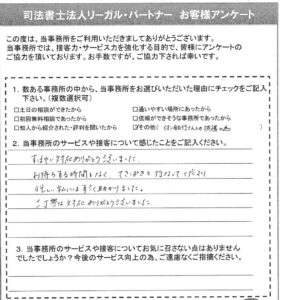 司法書士法人リーガル・パートナー お客様アンケート
この度は、当事務所をご利用いただきましてありがとうございます。
当事務所では、接客力・サービス力を強化する目的で、皆様にアンケートの
ご協力を頂いております。お手数ですが、ご協力下されば幸いです。
1. 数ある事務所の中から、当事務所をお選びいただいた理由にチェックをご記入
下さい。(複数選択可)
□土日の相談ができたから □通いやすい場所にあったから
□初回無料相談であったから □信頼ができそうな事務所であったから
□知人から紹介された・評判を聞いたから ☑その他(
2. 当事務所のサービスや接客について感じたことをご記入ください。
すばやい対応ありがとうございました。
お待ちする時間もなく、てきぱきと行なってくださり
忙しい私にはすごく助かりました。
ご丁寧な対応ありがとうございました。
3. 当事務所のサービスや接客についてお気に召さない点はありません
でしたでしょうか?今後のサービス向上の為、ご遠慮なくご指摘ください。